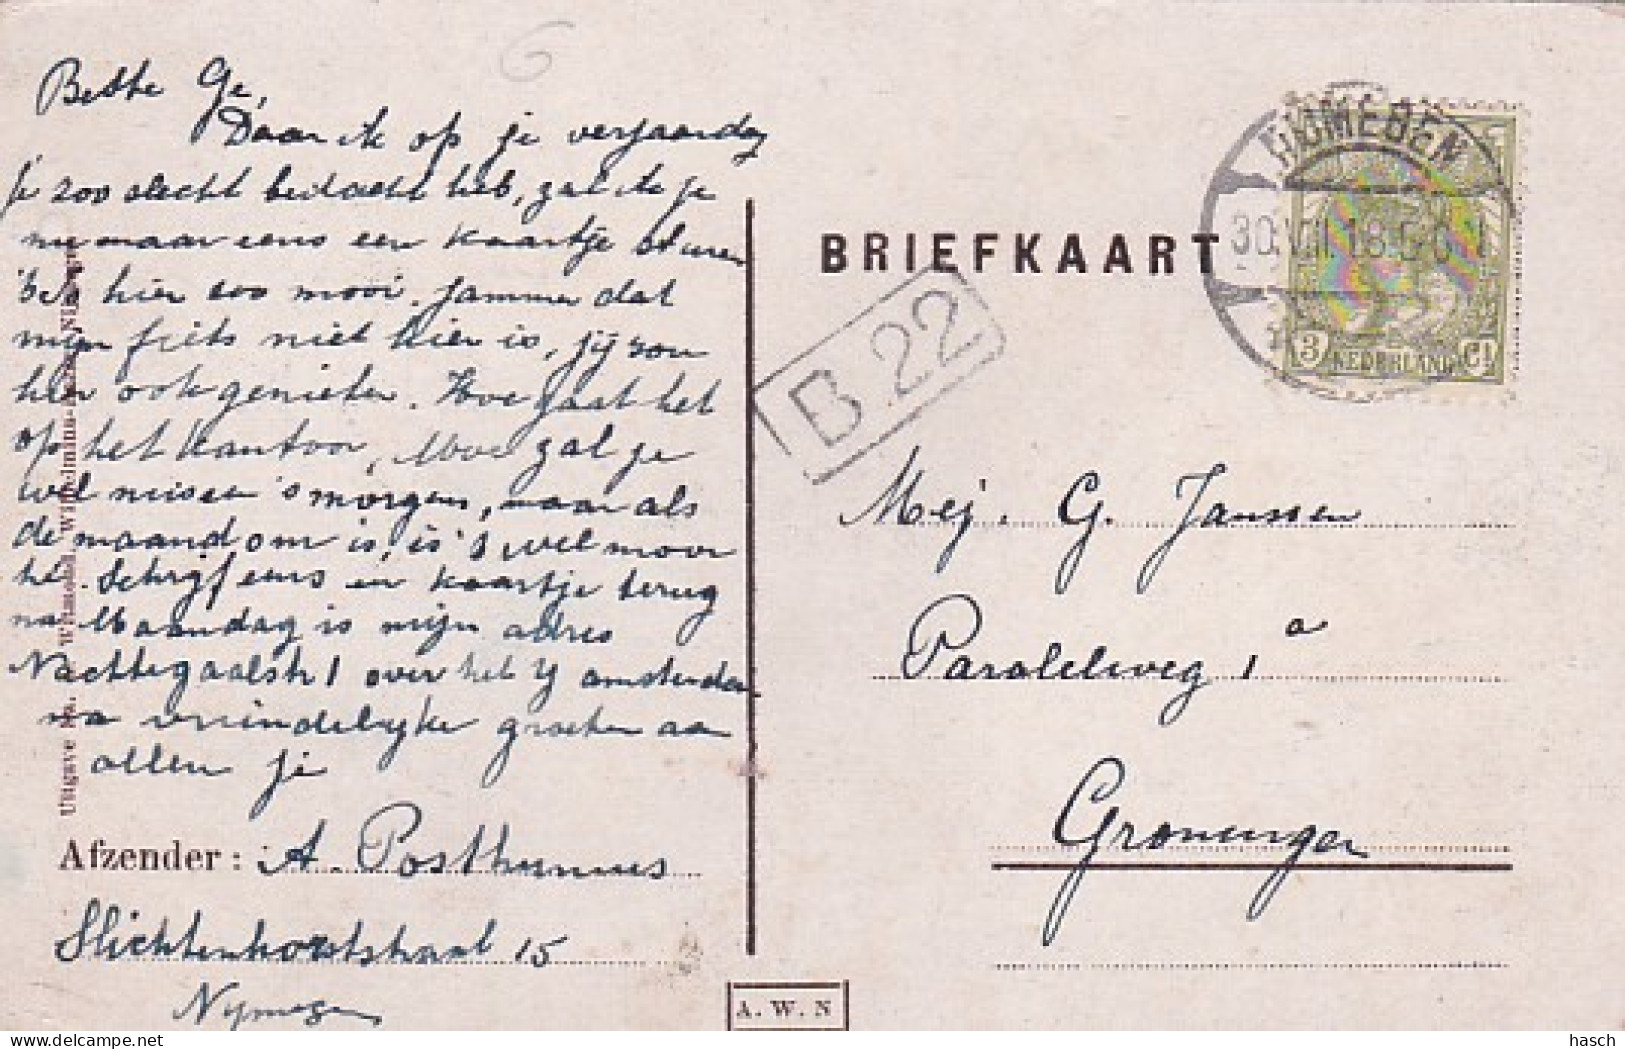 Beste Ge,
Daar ik op je verjaardag
je zoo slecht bedacht heb, zal ik je
nu maar eens een kaartje sturen
't is hier zoo mooi. Jammer dat
mijn fiets niet hier is, jij zou
hier ook genieten. Hoe gaat het
op het kantoor, Moe zal je
wel missen 's morgens, maar als
de maand om is, is 't wel mooi
hè. Schrijf eens en kaartje terug
na Maandag is mijn adres
Nachtegaalstr 1 over het Y Amsterdam
na vriendelijke groeten aan
allen je
Afzender: A. Posthumus
Slichtenhorststraat 15
Nymegen
Uitgave
6
BRIEFKAART
B 22
NIJMEGEN
30.VII.18.5-6
3 NEDERLAND Ct
Mej. G. Janssen
Paralelweg 1 a
Groningen
A. W. N
hasch